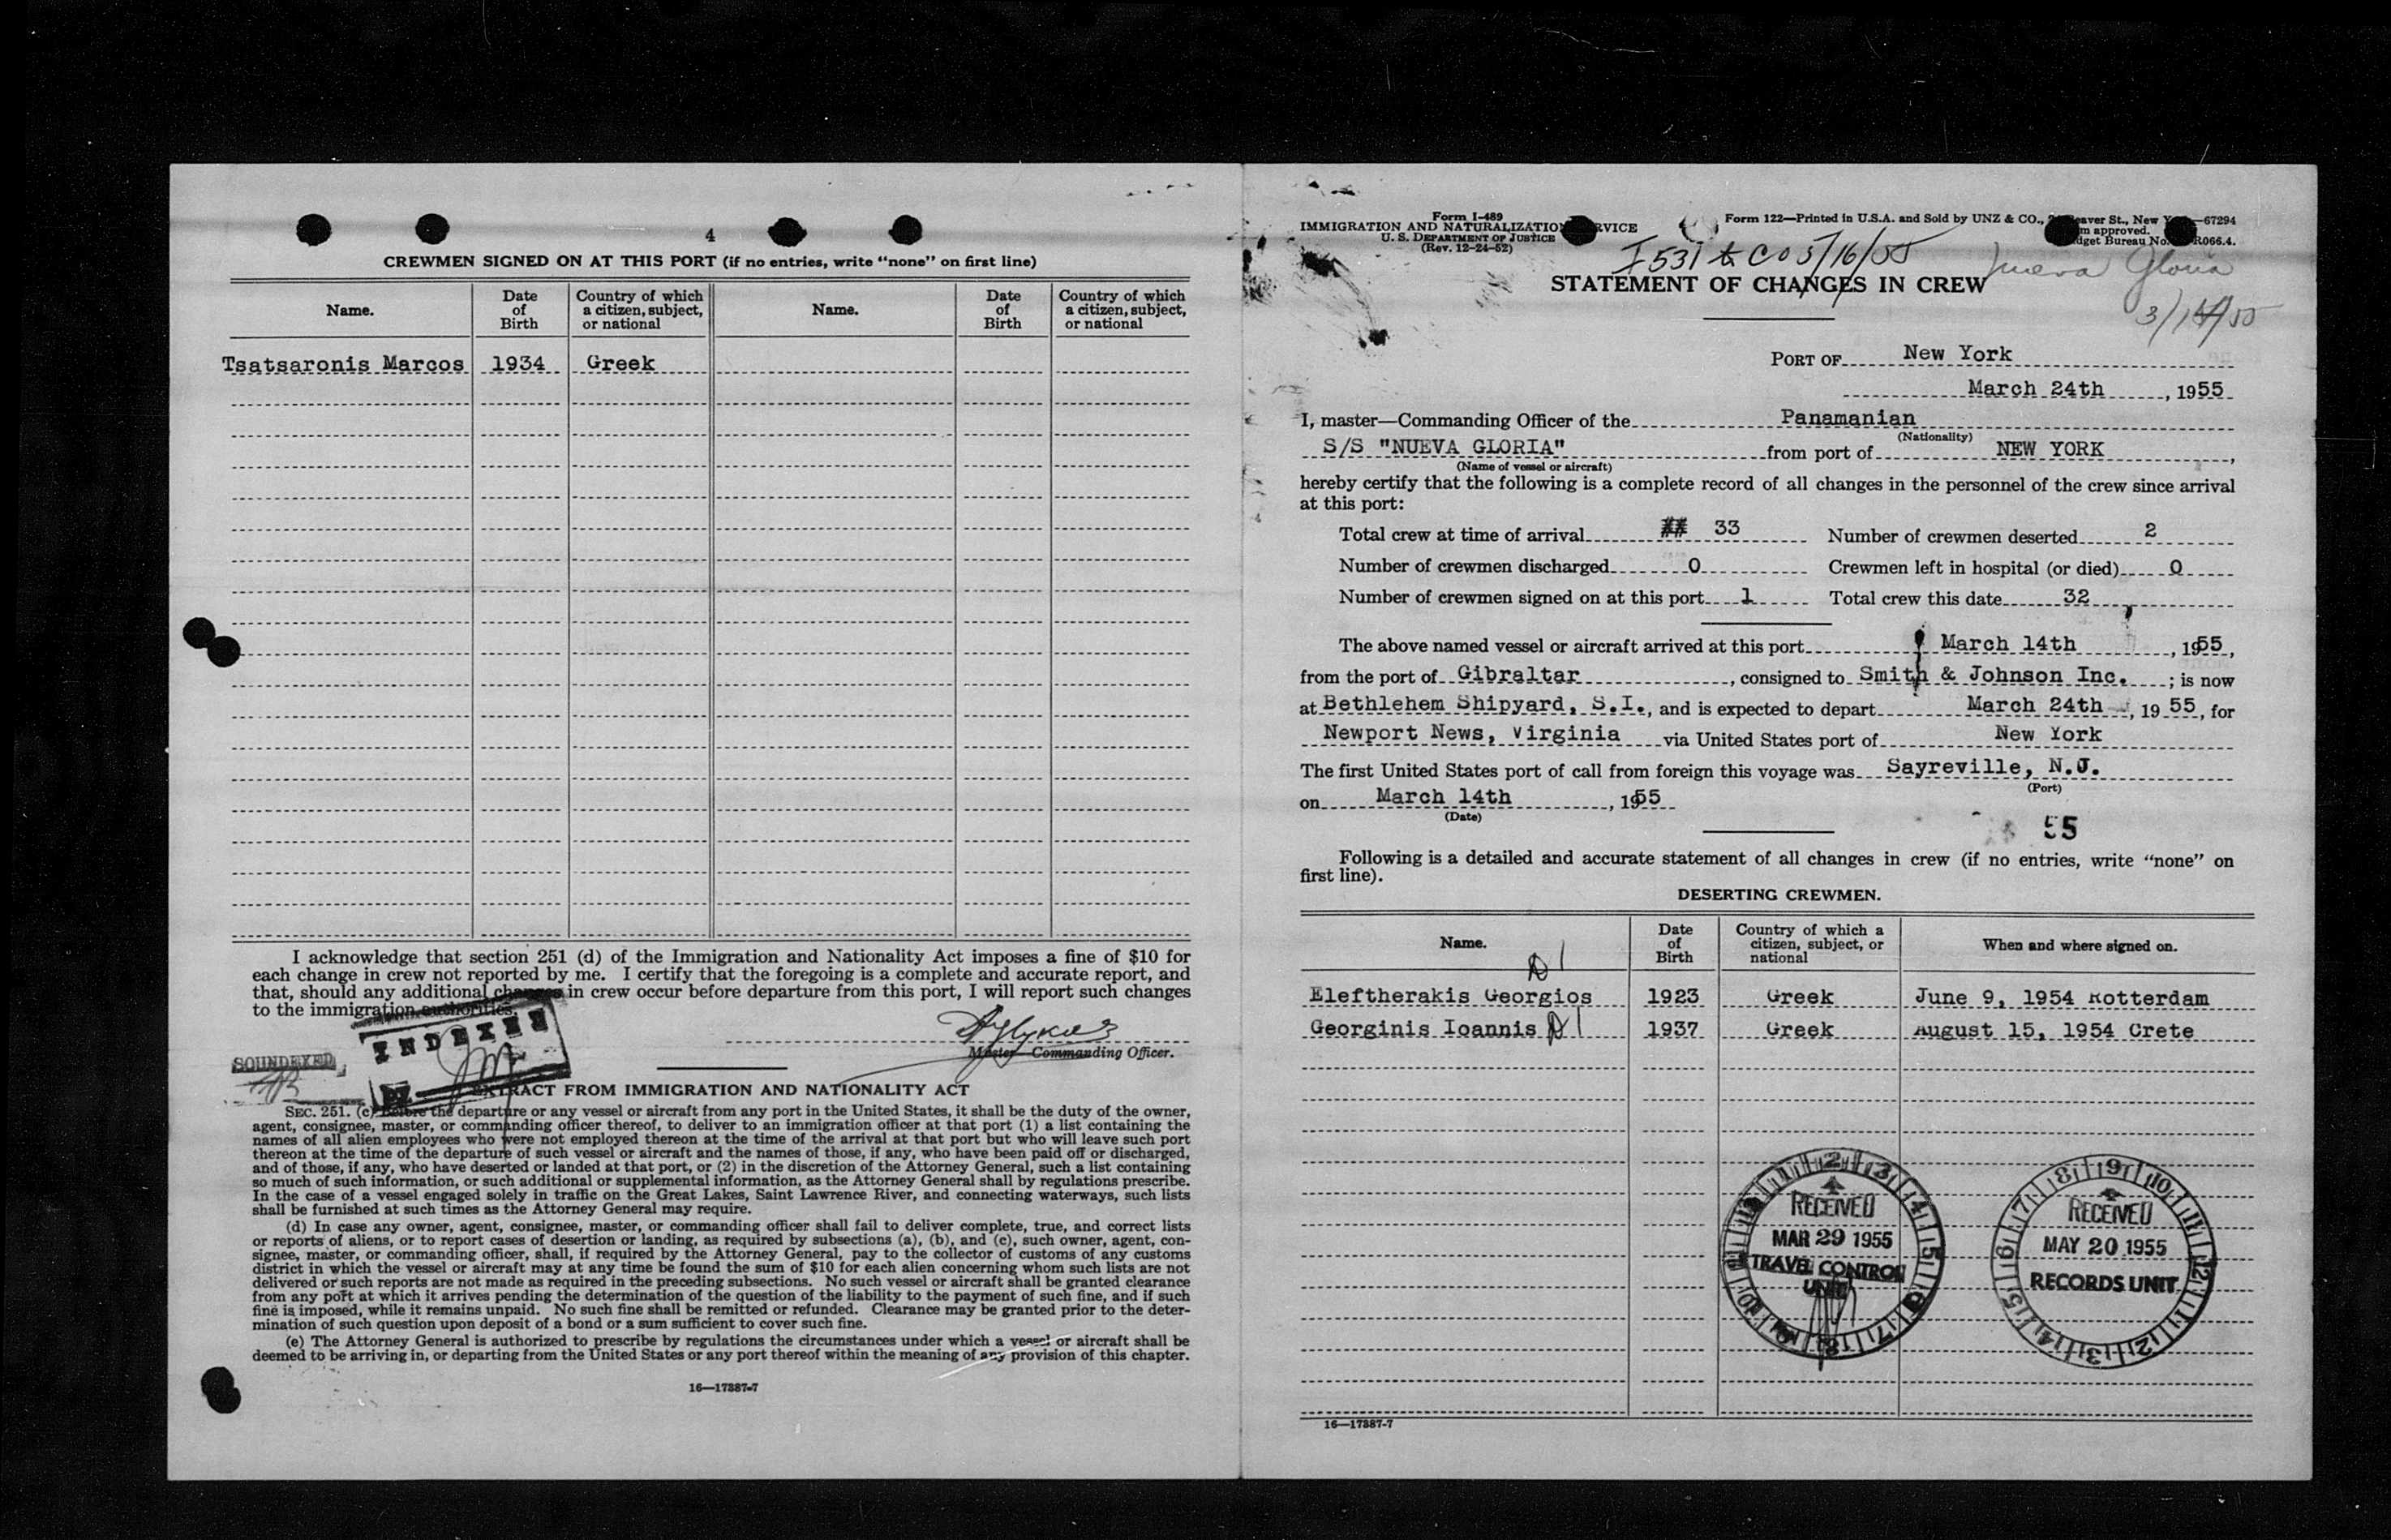 4
CREWMEN SIGNED ON AT THIS PORT (if no entries, write "none" on first line)
Name. Date of Birth Country of which a citizen, subject, or national Name. Date of Birth Country of which a citizen, subject, or national
Tsatsaronis Marcos 1934 Greek
I acknowledge that section 251 (d) of the Immigration and Nationality Act imposes a fine of $10 for
each change in crew not reported by me. I certify that the foregoing is a complete and accurate report, and
that, should any additional changes in crew occur before departure from this port, I will report such changes
to the immigration authorities.
INDEXED
SOUNDEXED
Master—Commanding Officer.
EXTRACT FROM IMMIGRATION AND NATIONALITY ACT
SEC. 251. (c) Before the departure or any vessel or aircraft from any port in the United States, it shall be the duty of the owner,
agent, consignee, master, or commanding officer thereof, to deliver to an immigration officer at that port (1) a list containing the
names of all alien employees who were not employed thereon at the time of the arrival at that port but who will leave such port
thereon at the time of the departure of such vessel or aircraft and the names of those, if any, who have been paid off or discharged,
and of those, if any, who have deserted or landed at that port, or (2) in the discretion of the Attorney General, such a list containing
so much of such information, or such additional or supplemental information, as the Attorney General shall by regulations prescribe.
In the case of a vessel engaged solely in traffic on the Great Lakes, Saint Lawrence River, and connecting waterways, such lists
shall be furnished at such times as the Attorney General may require.
(d) In case any owner, agent, consignee, master, or commanding officer shall fail to deliver complete, true, and correct lists
or reports of aliens, or to report cases of desertion or landing, as required by subsections (a), (b), and (c), such owner, agent, con-
signee, master, or commanding officer, shall, if required by the Attorney General, pay to the collector of customs of any customs
district in which the vessel or aircraft may at any time be found the sum of $10 for each alien concerning whom such lists are not
delivered or such reports are not made as required in the preceding subsections. No such vessel or aircraft shall be granted clearance
from any port at which it arrives pending the determination of the question of the liability to the payment of such fine, and if such
fine is imposed, while it remains unpaid. No such fine shall be remitted or refunded. Clearance may be granted prior to the deter-
mination of such question upon deposit of a bond or a sum sufficient to cover such fine.
(e) The Attorney General is authorized to prescribe by regulations the circumstances under which a vessel or aircraft shall be
deemed to be arriving in, or departing from the United States or any port thereof within the meaning of any provision of this chapter.
16—17887-7
Form I-489
IMMIGRATION AND NATURALIZATION SERVICE
U. S. DEPARTMENT OF JUSTICE
(Rev. 12-24-52)
Form 122—Printed in U.S.A. and Sold by UNZ & CO., Beaver St., New York—67294
Form approved.
Budget Bureau No. R066.4.
I 531 & CO 5/16/55
Nueva Gloria
3/14/55
STATEMENT OF CHANGES IN CREW
PORT OF New York
March 24th, 1955
I, master—Commanding Officer of the Panamanian
(Nationality)
S/S "NUEVA GLORIA" from port of NEW YORK,
(Name of vessel or aircraft)
hereby certify that the following is a complete record of all changes in the personnel of the crew since arrival
at this port:
Total crew at time of arrival 33 Number of crewmen deserted 2
Number of crewmen discharged 0 Crewmen left in hospital (or died) 0
Number of crewmen signed on at this port 1 Total crew this date 32
The above named vessel or aircraft arrived at this port March 14th, 1955,
from the port of Gibraltar, consigned to Smith & Johnson Inc.; is now
at Bethlehem Shipyard, S.I., and is expected to depart March 24th, 1955, for
Newport News, Virginia via United States port of New York
The first United States port of call from foreign this voyage was Sayreville, N.J.
(Port)
on March 14th, 1955
(Date)
55
Following is a detailed and accurate statement of all changes in crew (if no entries, write "none" on
first line).
DESERTING CREWMEN.
Name. Date of Birth Country of which a citizen, subject, or national When and where signed on.
Eleftherakis Georgios 1923 Greek June 9, 1954 Rotterdam
Georginis Ioannis 1937 Greek August 15, 1954 Crete
RECEIVED
MAR 29 1955
TRAVEL CONTROL
UNIT
RECEIVED
MAY 20 1955
RECORDS UNIT
16—17887-7